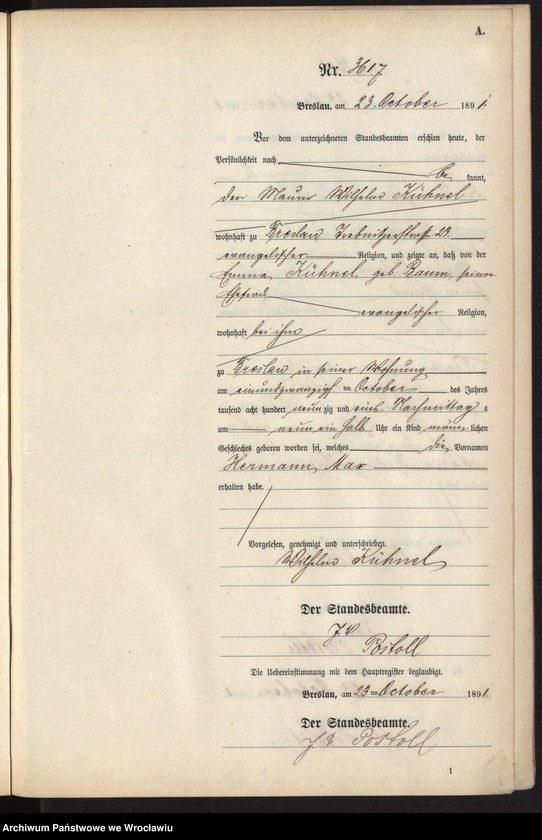 A.
Nr. 3617
Breslau, am 23. October 1891.
Vor dem unterzeichneten Standesbeamten erschien heute, der
Persönlichkeit nach
be kannt,
der Maurer Wilhelm Kühnel
wohnhaft zu Breslau Trebnitzerstraße 23.
evangelischer Religion, und zeigte an, daß von der
Emma Kühnel geb. Raum, seiner
Ehefrau
evangelischer Religion,
wohnhaft bei ihm
zu Breslau in seiner Wohnung
am einundzwanzigsten October des Jahres
tausend acht hundert neunzig und eins Nachmittags
um neun ein halb Uhr ein Kind männlichen
Geschlechts geboren worden sei, welches die Vornamen
Hermann Max
erhalten habe.
Vorgelesen, genehmigt und unterschrieben.
Wilhelm Kühnel
Der Standesbeamte.
J. V.
Postoll
Die Uebereinstimmung mit dem Hauptregister beglaubigt.
Breslau, am 23 ten October 1891.
Der Standesbeamte.
J. V. Postoll
1
Archiwum Państwowe we Wrocławiu